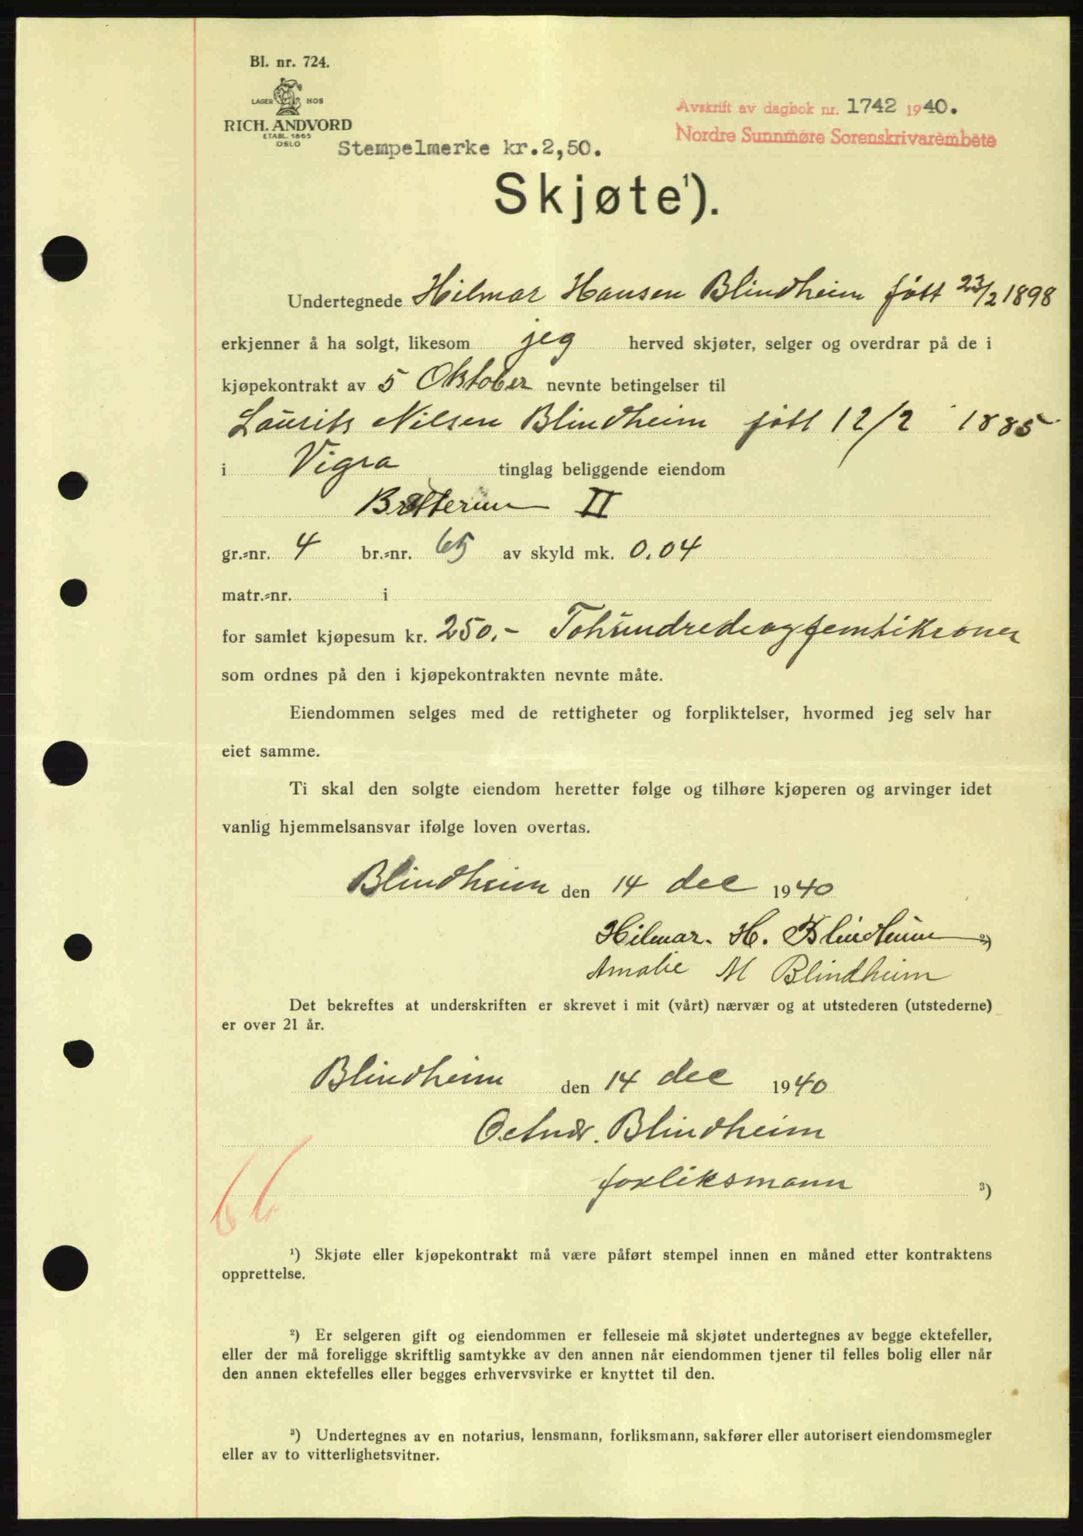 Bl. nr. 724.
LAGER HOS
RICH. ANDVORD
ETABL. 1865
OSLO
Avskrift av dagbok nr. 1742 1940.
Nordre Sunnmøre Sorenskrivarembete
Stempelmerke kr.2,50.
Skjøte¹).
Undertegnede Hilmar Hansen Blindheim født 23/2 1898
erkjenner å ha solgt, likesom jeg herved skjøter, selger og overdrar på de i
kjøpekontrakt av 5 Oktober nevnte betingelser til
Laurits Nilsen Blindheim født 12/2 1885
i Vigra tinglag beliggende eiendom
II
gr.-nr. 4 br.-nr. 65 av skyld mk. 0.04
matr.-nr. i
for samlet kjøpesum kr. 250.- Tohundredeogfemtikroner
som ordnes på den i kjøpekontrakten nevnte måte.
Eiendommen selges med de rettigheter og forpliktelser, hvormed jeg selv har
eiet samme.
Ti skal den solgte eiendom heretter følge og tilhøre kjøperen og arvinger idet
vanlig hjemmelsansvar ifølge loven overtas.
Blindheim den 14 dec 1940
Hilmar. H. Blindheim ²)
Amalie M Blindheim
Det bekreftes at underskriften er skrevet i mit (vårt) nærvær og at utstederen (utstederne)
er over 21 år.
Blindheim den 14 dec 1940
Blindheim
forliksmann ³)
66
¹) Skjøte eller kjøpekontrakt må være påført stempel innen en måned etter kontraktens
opprettelse.
²) Er selgeren gift og eiendommen er felleseie må skjøtet undertegnes av begge ektefeller,
eller der må foreligge skriftlig samtykke av den annen når eiendommen tjener til felles bolig eller når
den annen ektefelles eller begges erhvervsvirke er knyttet til den.
³) Undertegnes av en notarius, lensmann, forliksmann, sakfører eller autorisert eiendomsmegler
eller av to vitterlighetsvitner.